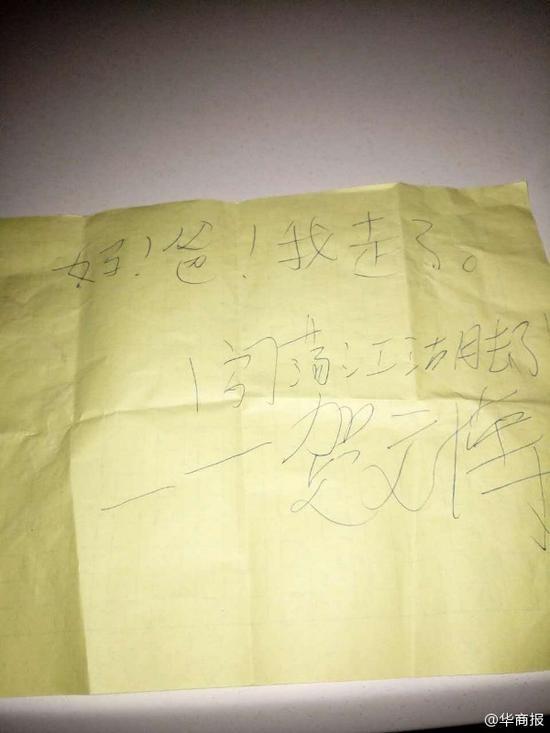 妈！爸！我走了。
闯荡江湖去了
——贺文博
@华商报